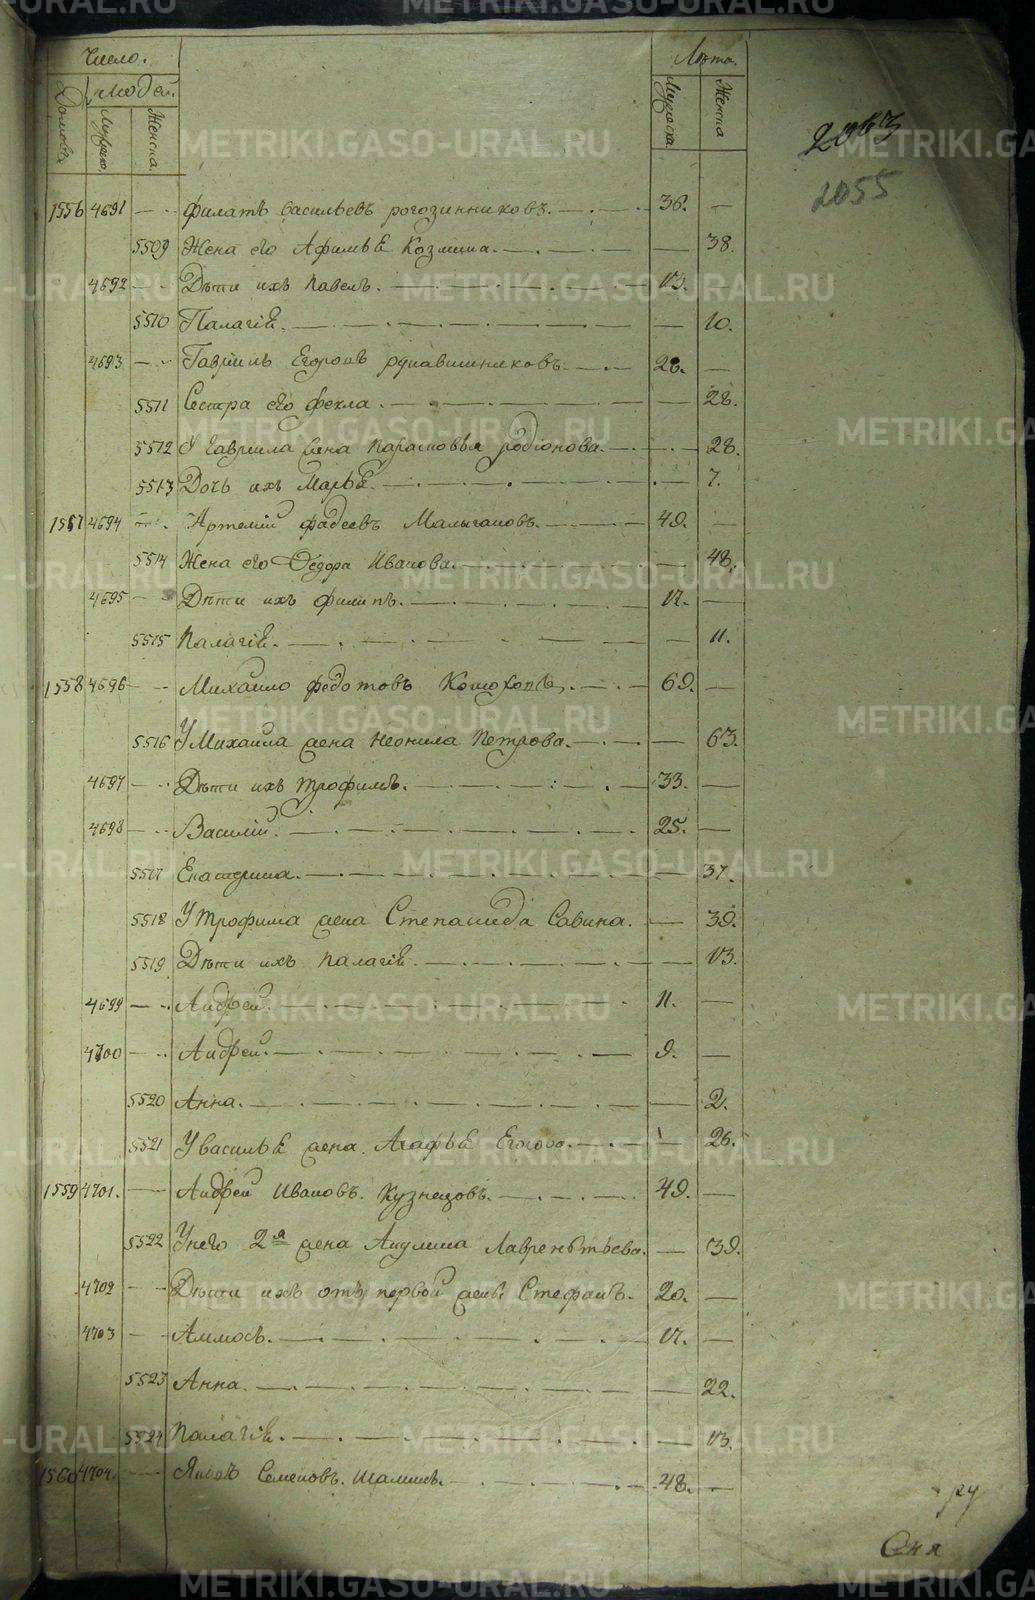 Число. Лѣта.
Домовъ людей.
Мужеска. Женска. Мужеска Женска
2063
2055
1556 4691 — филатъ васильевъ рогозинниковъ. 36. —
5509 Жена его Афимьѣ Козмина. — 38.
4692 — Дѣти ихъ павелъ. 13. —
5510 Палагіѣ. — 10.
4693 — Гаврилъ Егоровъ рукавишниковъ 28. —
5511 Сестра его фекла. — 28.
5512 У гаврила жена парасковья родіонова. — 28.
5513 Дочь ихъ Марьѣ. — 7.
1557 4694 — Артемій фадеевъ Малыгановъ. 49. —
5514 Жена его Ѳедора Иванова. — 48.
4695 — Дѣти ихъ филипъ. 12. —
5515 палагіѣ. — 11.
1558 4696 — Михаило федотовъ Конюховъ. 69. —
5516 У Михаила жена неонила петрова. — 63.
4697 — Дѣти ихъ трофимъ. 33. —
4698 — Василій. 25. —
5517 Екатерина. — 37.
5518 У трофима жена Степанида Савина. — 39.
5519 Дѣти ихъ палагіѣ. — 13.
4699 — Андрей. 11. —
4700 — Андрей. 9. —
5520 Анна. — 2.
5521 У васильѣ жена Агафьѣ Егорова. — 26.
1559 4701. — Андрей Ивановъ Кузнецовъ. 49. —
5522 У него 2я жена Акулина Лаврентьева. — 39.
4702 — Дѣти ихъ отъ первой жены Стефанъ. 20. —
4703 — Аммосъ. 17. —
5523 Анна. — 22.
5524 палагіѣ. — 13.
1560 4704. — Яковъ Семеновъ Шалинъ. 48. —
ру
METRIKI.GASO-URAL.RU